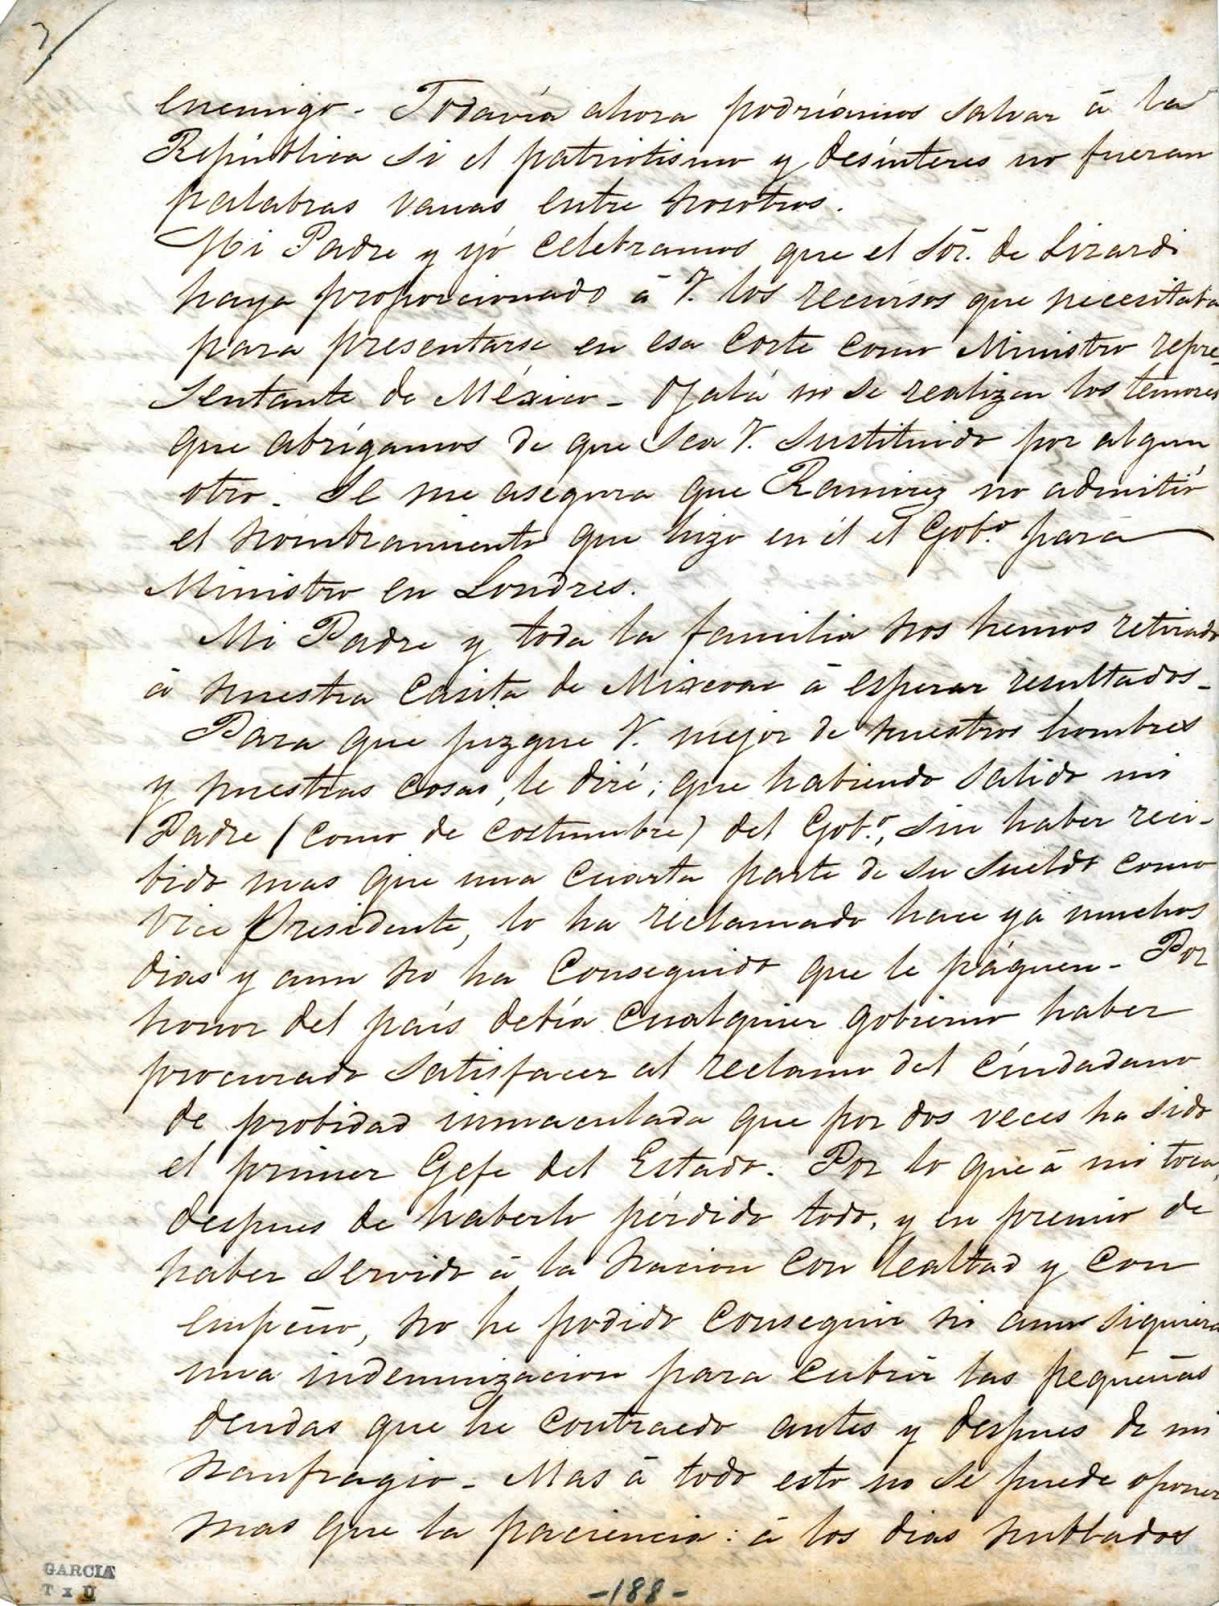 7/
enemigo - Todavía ahora podríamos salvar á la
República si el patriotismo y desínteres no fueran
palabras vanas entre nosotros.
Mi Padre y yó celebramos que el Sōr. de Lizardi
haya proporcionado á V. los recursos que necesitaba
para presentarse en esa Corte como Ministro repre-
sentante de México - Ojalá no se realizen los temores
que abrígamos de que sea V. sustituido por algun
otro - Se me asegura que Ramirez no admitió
el nombramiento que hizo en él el Gob.º para
Ministro en Londres.
Mi Padre y toda la familia nos hemos retirado
á nuestra casita de Mixcoac á esperar resultados -
Para que juzgue V. mejor de nuestros hombres
y nuestras cosas, le diré; que habiendo salido mi
Padre (como de costumbre) del Gob.º, sin haber reci-
bido mas que una cuarta parte de su sueldo como
Vice Presidente, lo ha reclamado hace ya muchos
dias y aun no ha conseguido que le páguen - Por
honor del país debía cualquier gobierno haber
procurado satisfacer al reclamo del cíudadano
de probidad inmaculada que por dos veces ha sido
el primer Gefe del Estado. Por lo que á mi toca,
despues de haberlo pérdido todo, y en premio de
haber servido á la Nacion con lealtad y con
empeño, no he podido conseguir ni aun siquiera
una indemnizacion para cubrir las pequeñas
deudas que he contraedo antes y despues de mi
naufragio - Mas á todo esto no se puede oponer
mas que la paciencia: á los dias nublados
GARCIA
T x U
-188-